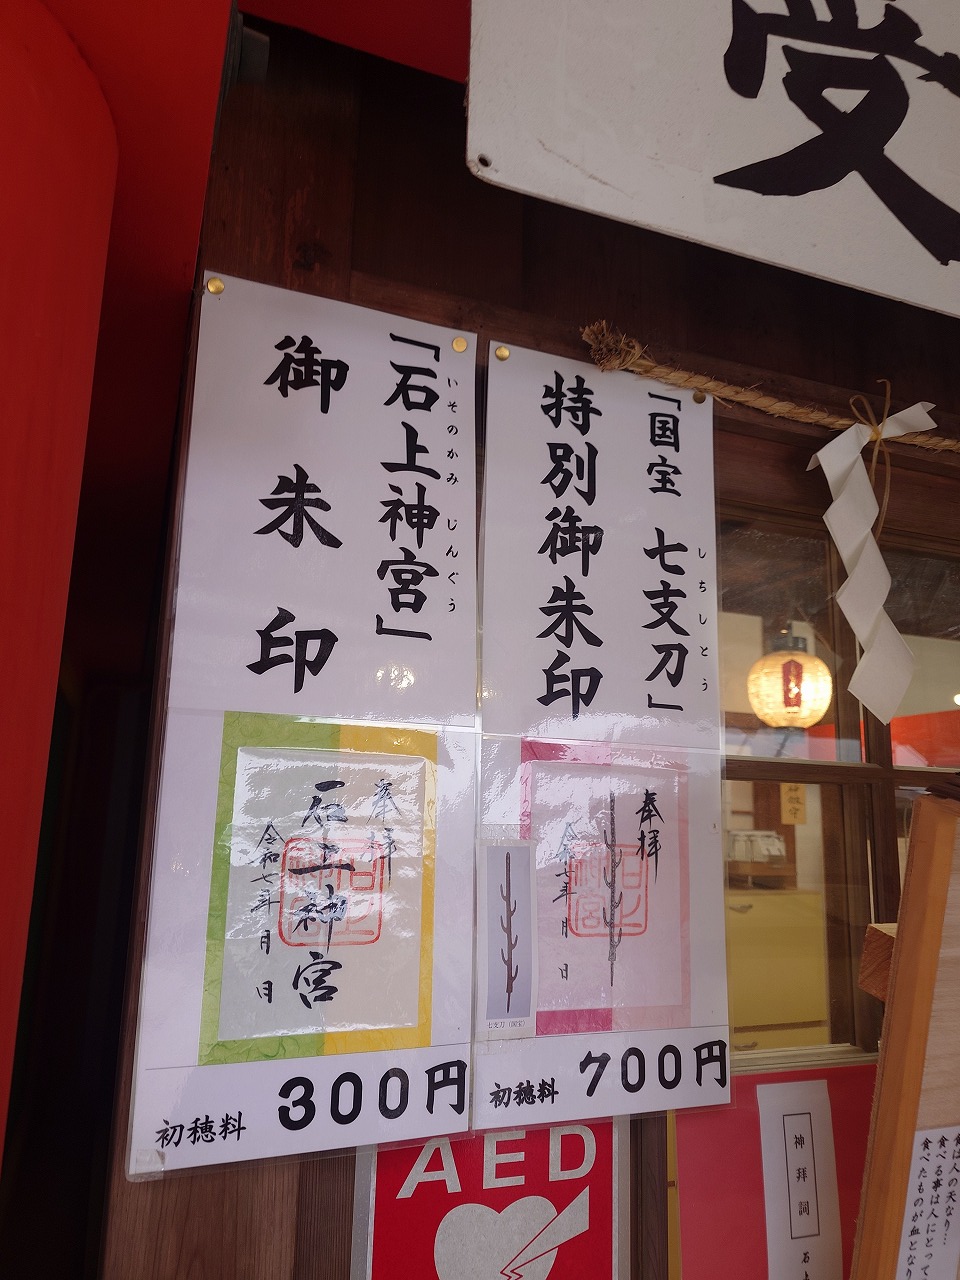 受
「石上神宮」
いそのかみ じんぐう
御朱印
奉拝
石上神宮
令和七年 月 日
初穂料 300円
「国宝 七支刀」
しちしとう
特別御朱印
奉拝
令和七年 月 日
七支刀(国宝)
初穂料 700円
AED
神拝詞
石上
食は人の天なり…
食べる事は人にとって
食べたものが血となり